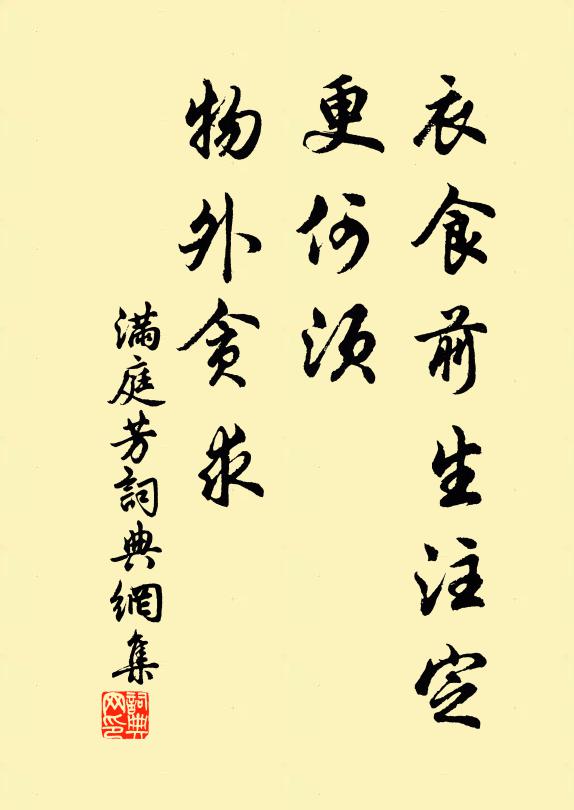 衣食前生注定
更何須
物外貪求
滿庭芳詞典網集
詞典
网印